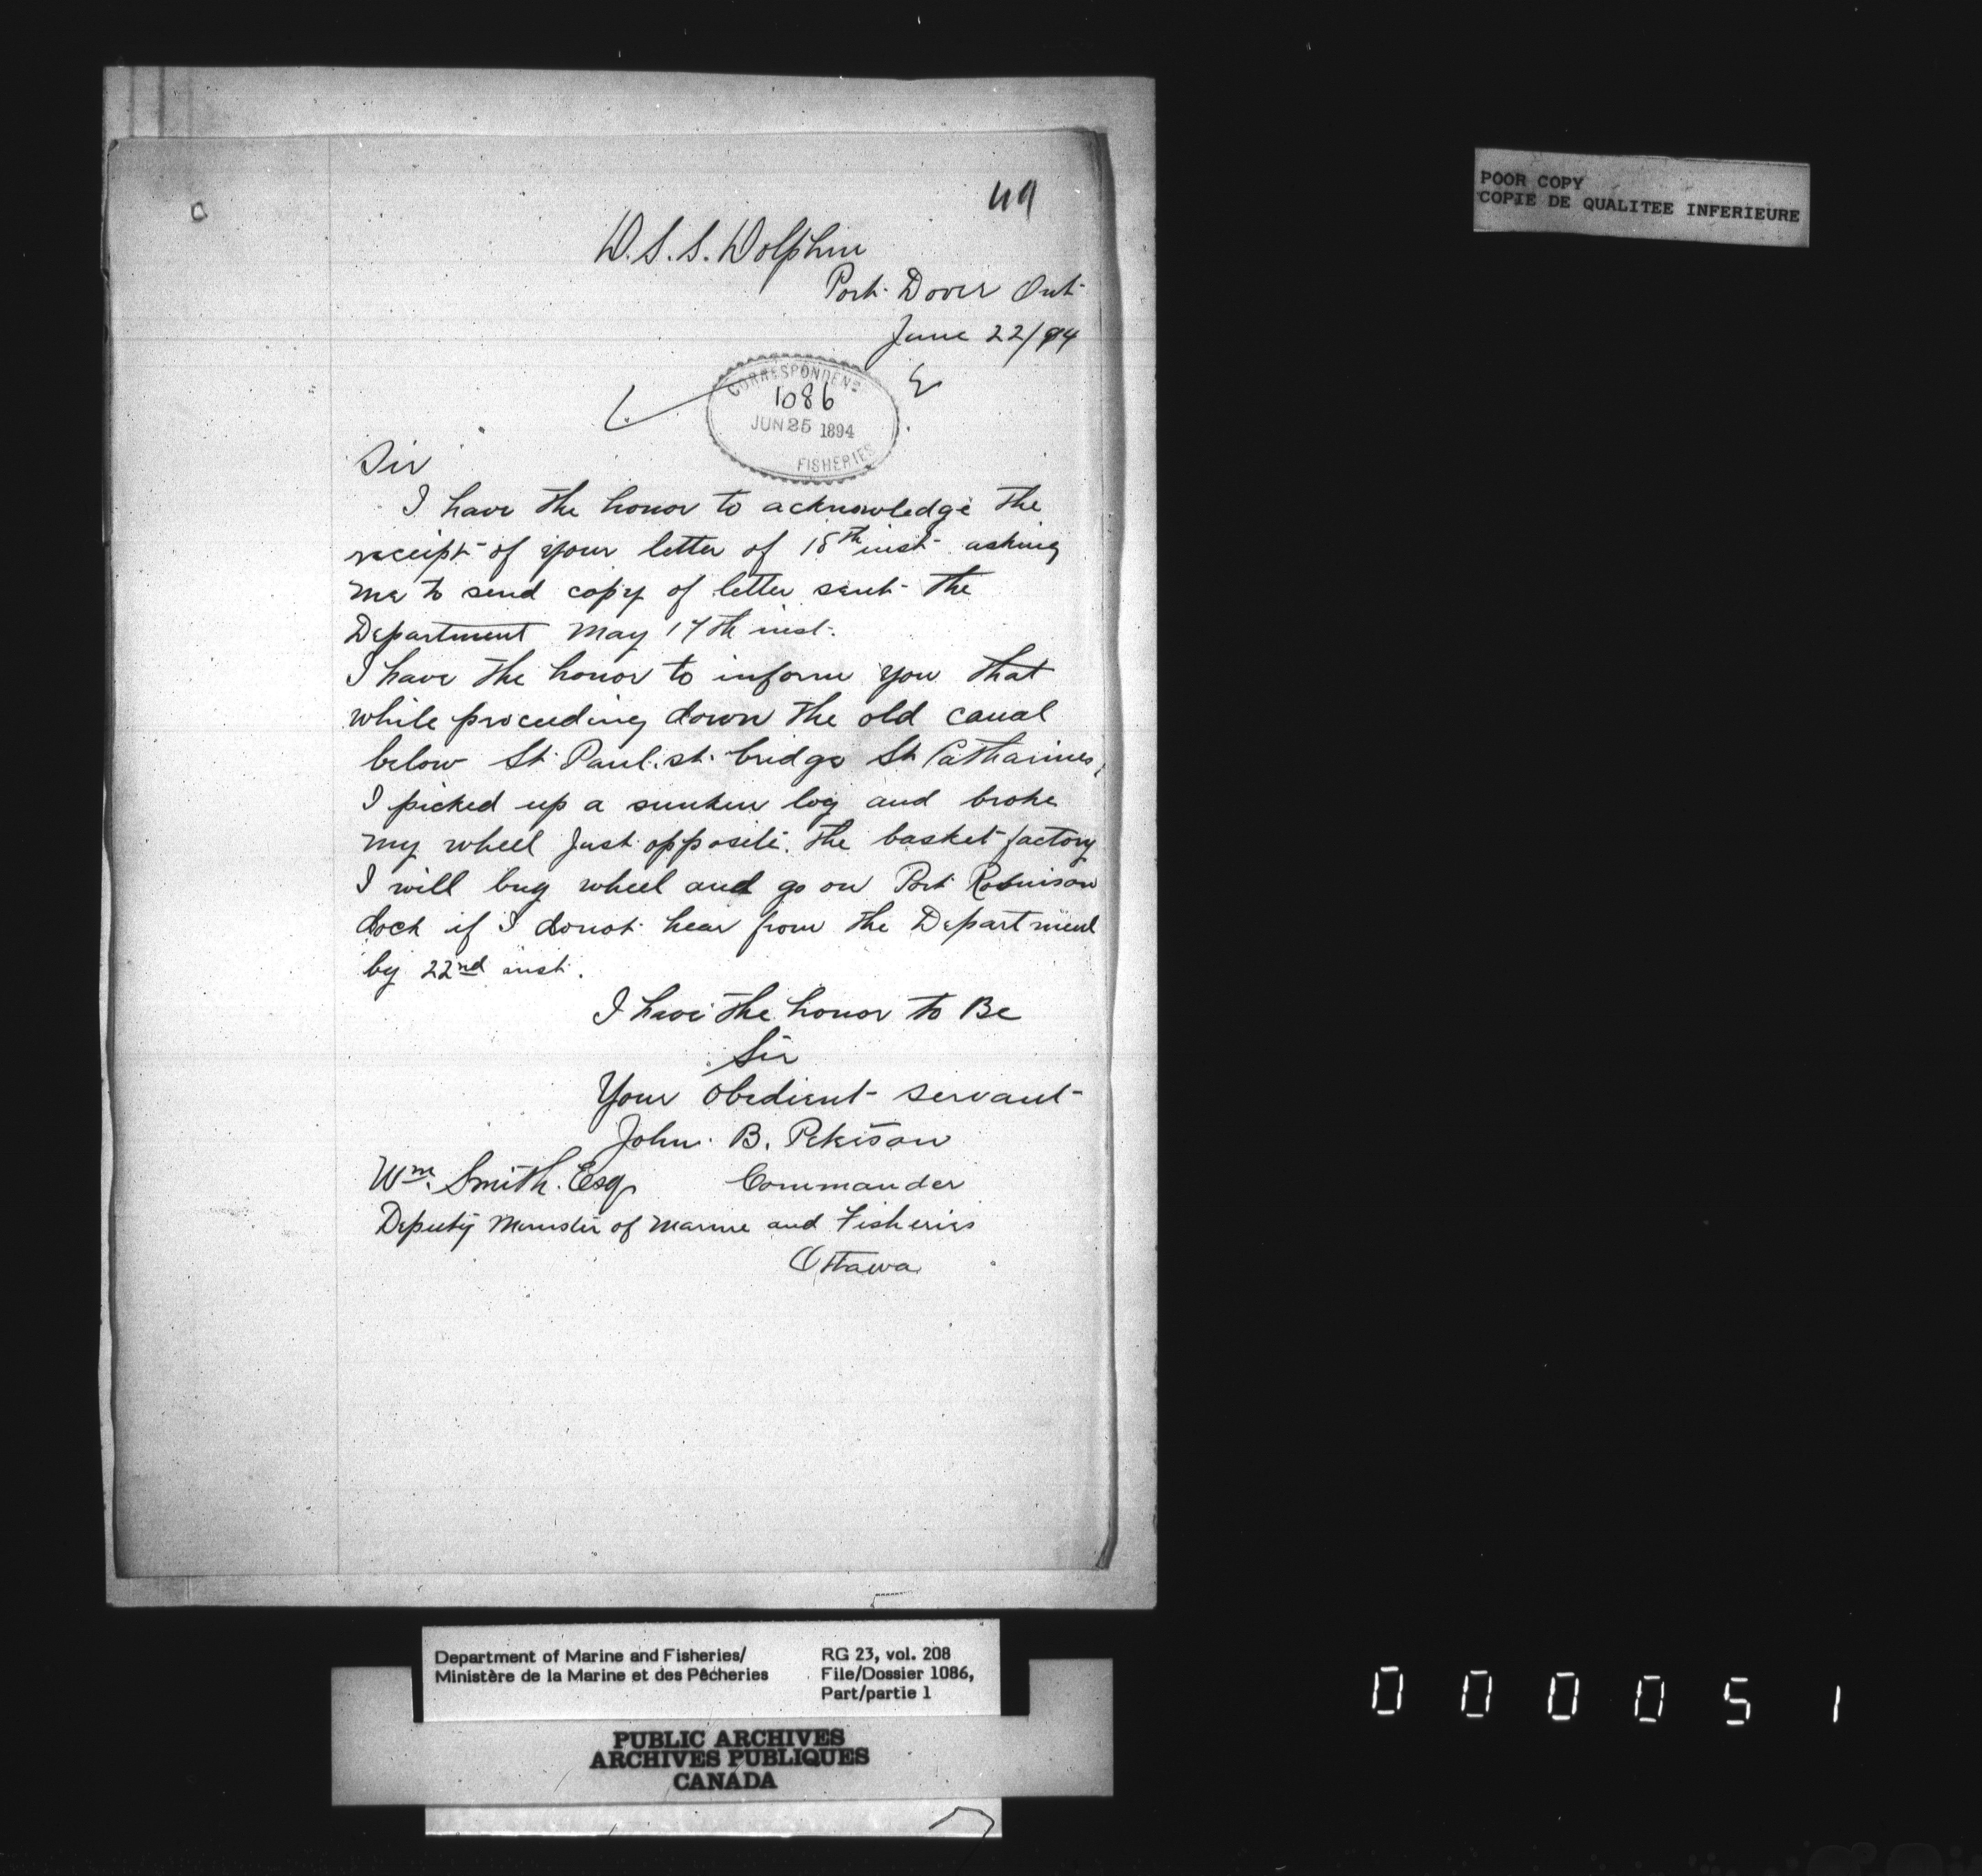 49
C
D.S.S. Dolphin
Port Dover Ont
June 22/94
CORRESPONDENCE
1086
JUN 25 1894
FISHERIES
Sir
I have the honor to acknowledge the
receipt of your letter of 18th inst asking
me to send copy of letter sent the
Department May 17th inst.
I have the honor to inform you that
while proceeding down the old canal
below St Paul. st. bridge St Catharines,
I picked up a sunken log and broke
my wheel just opposite the basket factory
I will buy wheel and go on Port Robinson
dock if I donot hear from the Department
by 22nd inst.
I have the honor to Be
Sir
Your obedient servant
John B.
Wm. Smith. Esq Commander
Deputy Minister of Marine and Fisheries
Ottawa
POOR COPY
COPIE DE QUALITEE INFERIEURE
Department of Marine and Fisheries/
Ministère de la Marine et des Pêcheries
RG 23, vol. 208
File/Dossier 1086,
Part/partie 1
PUBLIC ARCHIVES
ARCHIVES PUBLIQUES
CANADA
000051